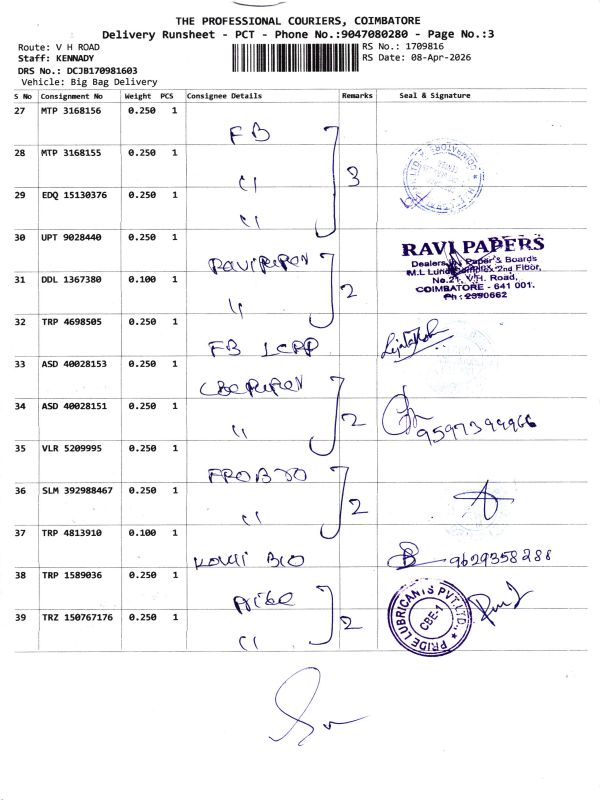 THE PROFESSIONAL COURIERS, COIMBATORE
Delivery Runsheet - PCT - Phone No.:9047080280 - Page No.:3
Route: V H ROAD RS No.: 1709816
Staff: KENNADY RS Date: 08-Apr-2026
DRS No.: DCJB170981603
Vehicle: Big Bag Delivery
S No Consignment No Weight PCS Consignee Details Remarks Seal & Signature
27 MTP 3168156 0.250 1 FB
28 MTP 3168155 0.250 1 " 3
29 EDQ 15130376 0.250 1 "
30 UPT 9028440 0.250 1
RAVI PAPERS
Dealers in Paper & Boards
M.L Lund Complex 2nd Floor,
No.21, V.H. Road,
COIMBATORE - 641 001.
Ph : 2390662
31 DDL 1367380 0.100 1 " 2
32 TRP 4698505 0.250 1 FB
33 ASD 40028153 0.250 1
34 ASD 40028151 0.250 1 " 2
35 VLR 5209995 0.250 1
36 SLM 392988467 0.250 1 " 2
37 TRP 4813910 0.100 1 BIO 9629358288
38 TRP 1589036 0.250 1 Pride
PRIDE LUBRICANTS PVT.LTD.,
CBE-1
39 TRZ 150767176 0.250 1 " 2